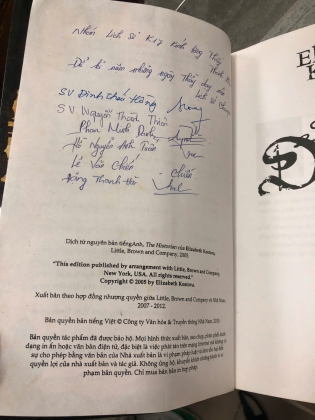 Nhóm Lịch Sử K17 Kính tặng Thầy
Để kỉ niệm những ngày Thầy dạy
Lịch Sử
SV Đinh Thái Hoàng
SV Nguyễn Thành Thiên
Phan Minh
Hồ Nguyễn Anh Tuấn
Lê Văn Chiến Chiến
Đặng Thanh
Dịch từ nguyên bản tiếng Anh, The Historian của Elizabeth Kostova,
Little, Brown and Company, 2005.
"This edition published by arrangement with Little, Brown and Company,
New York, USA. All rights reserved."
Copyright © 2005 by Elizabeth Kostova.
Xuất bản theo hợp đồng nhượng quyền giữa Little, Brown and Company và Nhã Nam,
2007 - 2012.
Bản quyền bản tiếng Việt © Công ty Văn hóa & Truyền thông Nhã Nam, 2010.
Bản quyền tác phẩm đã được bảo hộ. Mọi hình thức xuất bản, sao chụp, phân phối dưới
dạng in ấn hoặc văn bản điện tử, đặc biệt là việc phát tán trên mạng Internet mà không có
sự cho phép bằng văn bản của Nhà xuất bản là vi phạm pháp luật và làm tổn hại đến
quyền lợi của nhà xuất bản và tác giả. Không ủng hộ, khuyến khích những hành vi vi
phạm bản quyền. Chỉ mua bán bản in hợp pháp.